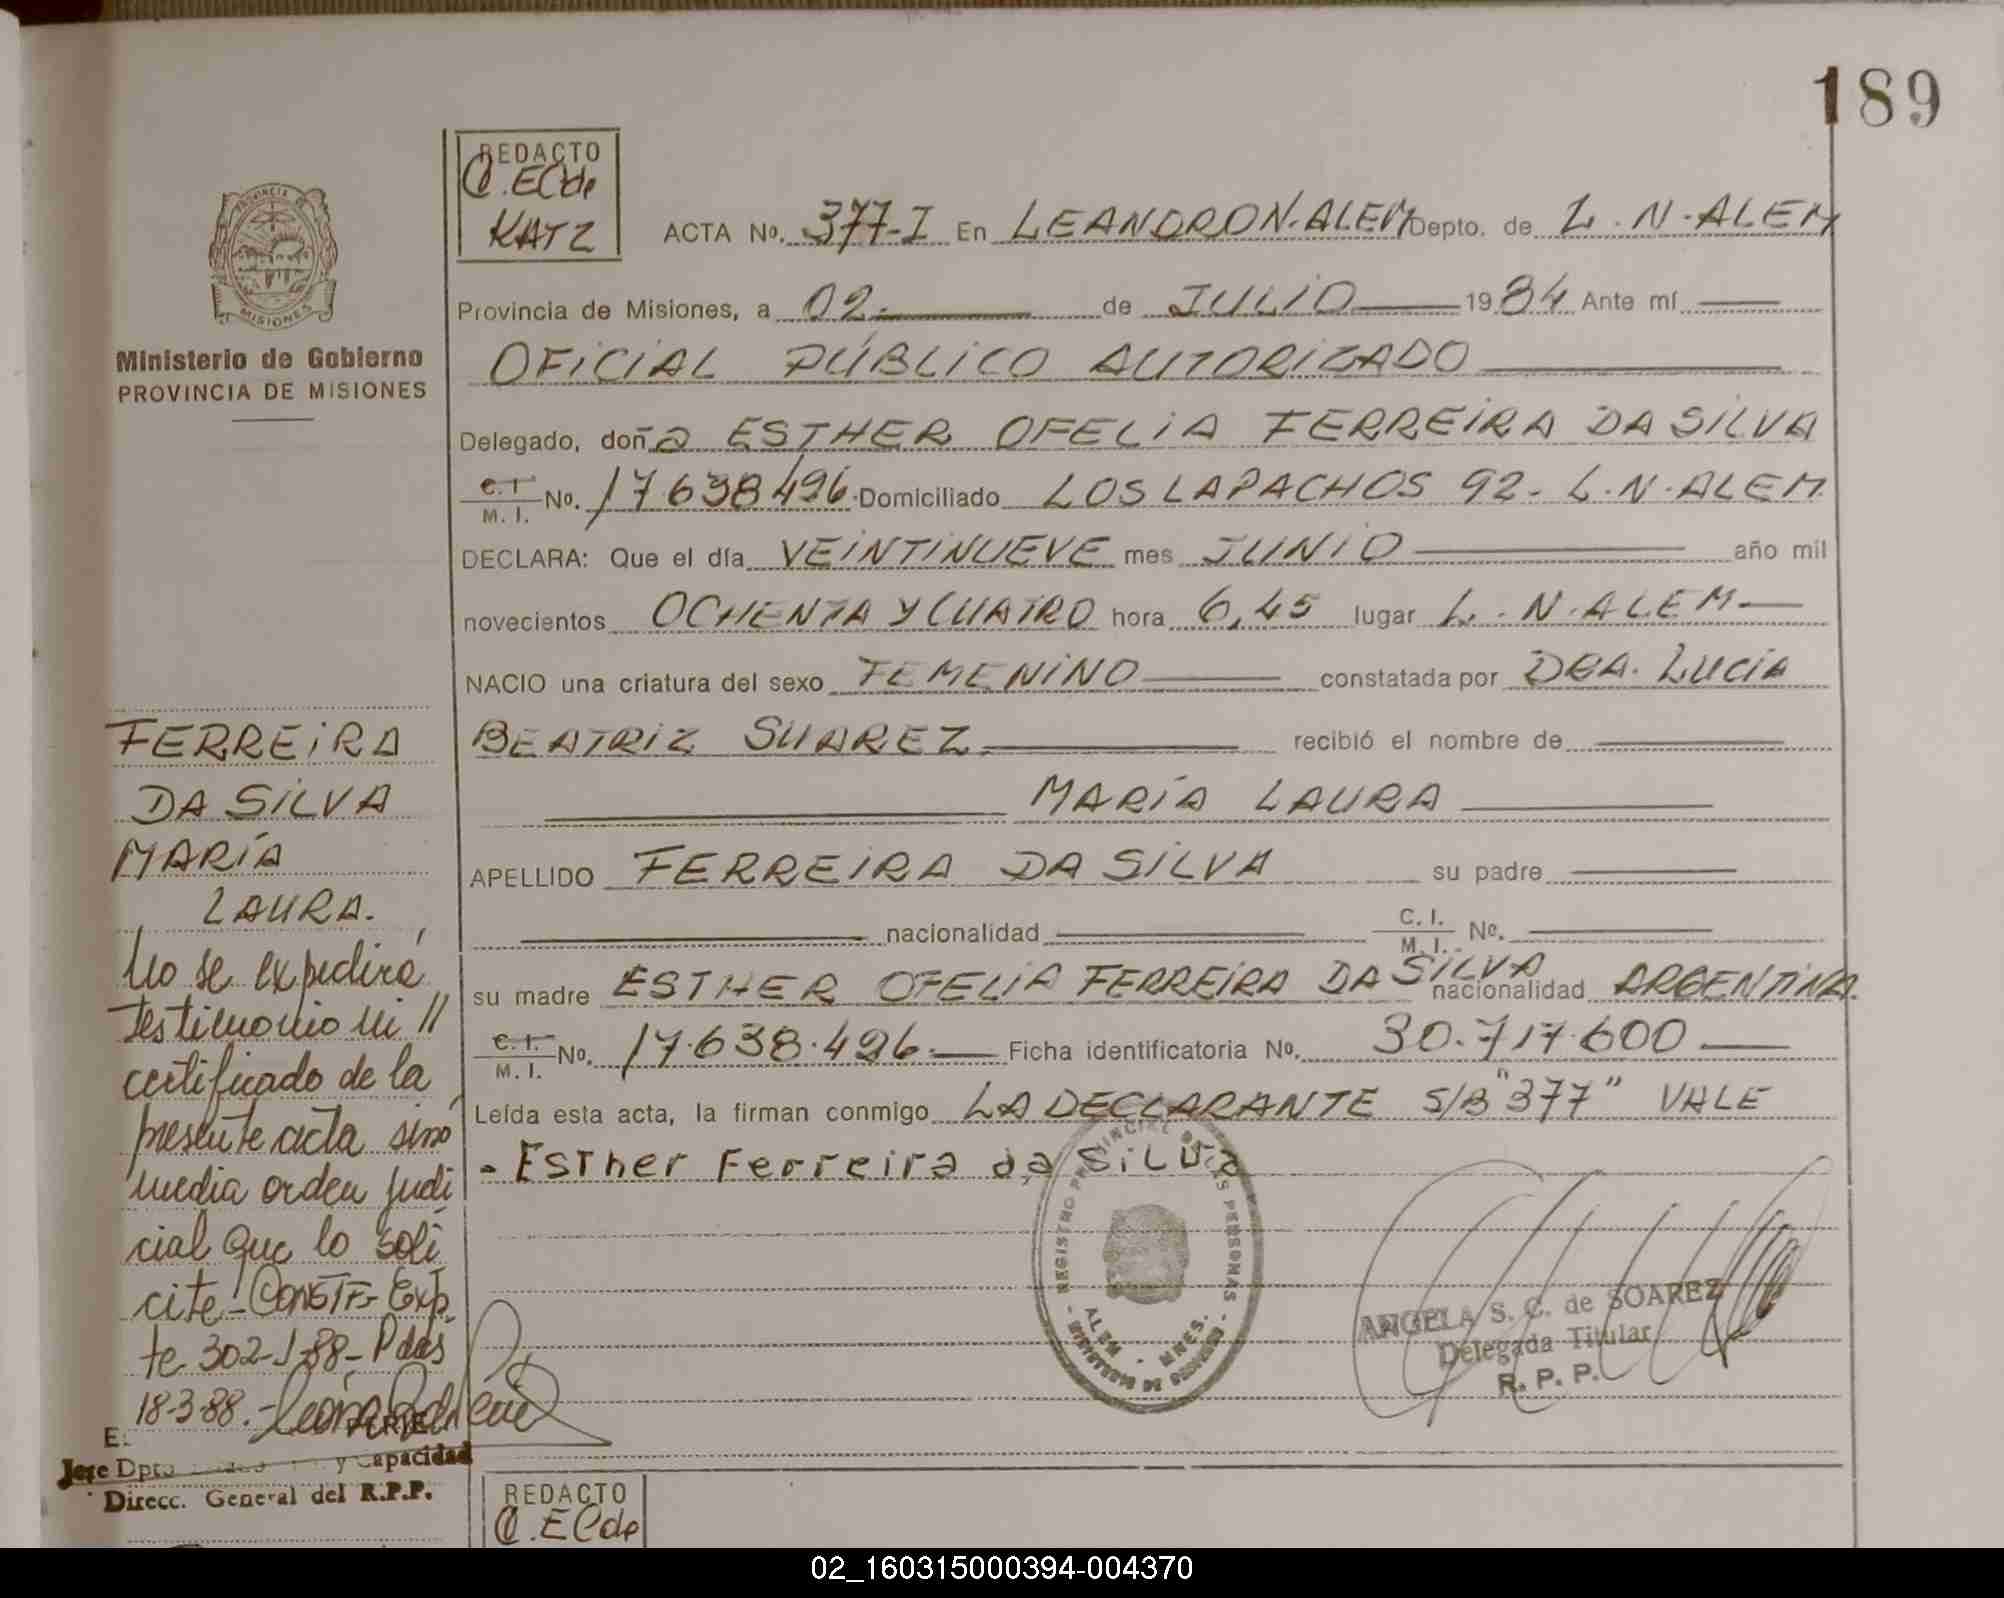 189
REDACTO
C. EC de
KATZ
ACTA No. 377-I En LEANDRO N. ALEM Depto. de L. N. ALEM
PROVINCIA DE
MISIONES
Ministerio de Gobierno
PROVINCIA DE MISIONES
Provincia de Misiones, a 02 de JULIO 1984 Ante mí
OFICIAL PÚBLICO AUTORIZADO
Delegado, doña ESTHER OFELIA FERREIRA DA SILVA
C. I. M. I. No. 17638496 Domiciliado LOS LAPACHOS 92- L. N. ALEM
DECLARA: Que el día VEINTINUEVE mes JUNIO año mil
novecientos OCHENTA Y CUATRO hora 6,45 lugar L. N. ALEM
NACIO una criatura del sexo FEMENINO constatada por DRA. LUCIA
BEATRIZ SUAREZ recibió el nombre de
MARÍA LAURA
APELLIDO FERREIRA DA SILVA su padre
nacionalidad C. I. M. I. No.
su madre ESTHER OFELIA FERREIRA DA SILVA nacionalidad ARGENTINA.
C. I. M. I. No. 17.638.496. Ficha identificatoria No. 30.717.600
Leída esta acta, la firman conmigo LA DECLARANTE S/B "377" VALE
- Esther Ferreira da Silva
FERREIRA
DA SILVA
MARÍA
LAURA.
No se expedirá
testimonio ni //
certificado de la
presente acta sino
media orden judi
cial que lo soli
cite - CONSTE- Exp
te 302-J-88- Pdas
18-3-88.-
REGISTRO PROVINCIAL DE LAS PERSONAS
ALEM - MNES.
ANGELA S. C. de SOAREZ
Delegada Titular
R. P. P.
Jefe Dpto y Capacidad
Direcc. General del R.P.P.
REDACTO
C. EC de
02_160315000394-004370